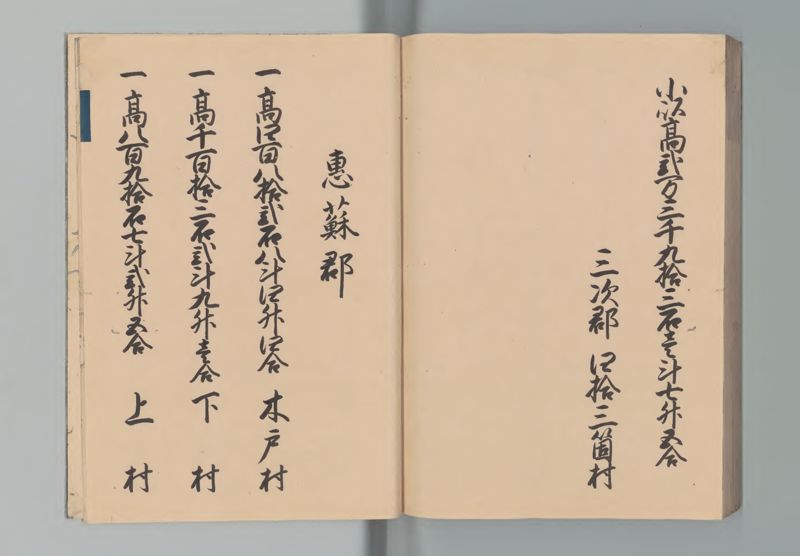 小以高弐万三千九拾三石壱斗七升五合
三次郡 四拾三箇村
恵蘇郡
一高四百八拾弐石八斗四升四合 木戸村
一高千百拾三石弐斗九升壱合 下村
一高八百九拾石七斗弐升五合 上村